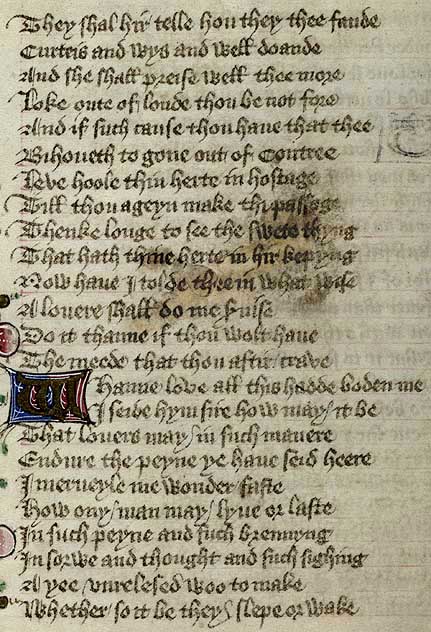 They shal hir telle hou they thee fande
Curteis and wys and well doande
And she shall preise well thee more
Loke oute of londe thou be not fore
And if such cause thou haue that thee
Bihoueth to gone out of Contree
Leve hoole thin herte in hostage
Till thou ageyn make thi passage
Thenke longe to see the swete thyng
That hath thine herte in hir kepyng
Now haue I tolde thee in what wise
A louere shall do me seruise
Do it thanne if thou wolt haue
The meede that thou aftir craue
Whanne love all this hadde boden me
I seide hym sire how may it be
That louers may in such manere
Endure the peyne ye haue seid heere
I merueyle me wonder faste
How ony man may lyue or laste
In such peyne and such brennyng
In sorwe and thought and such sighing
A yee vnrelesed woo to make
Whether so it be they slepe or wake